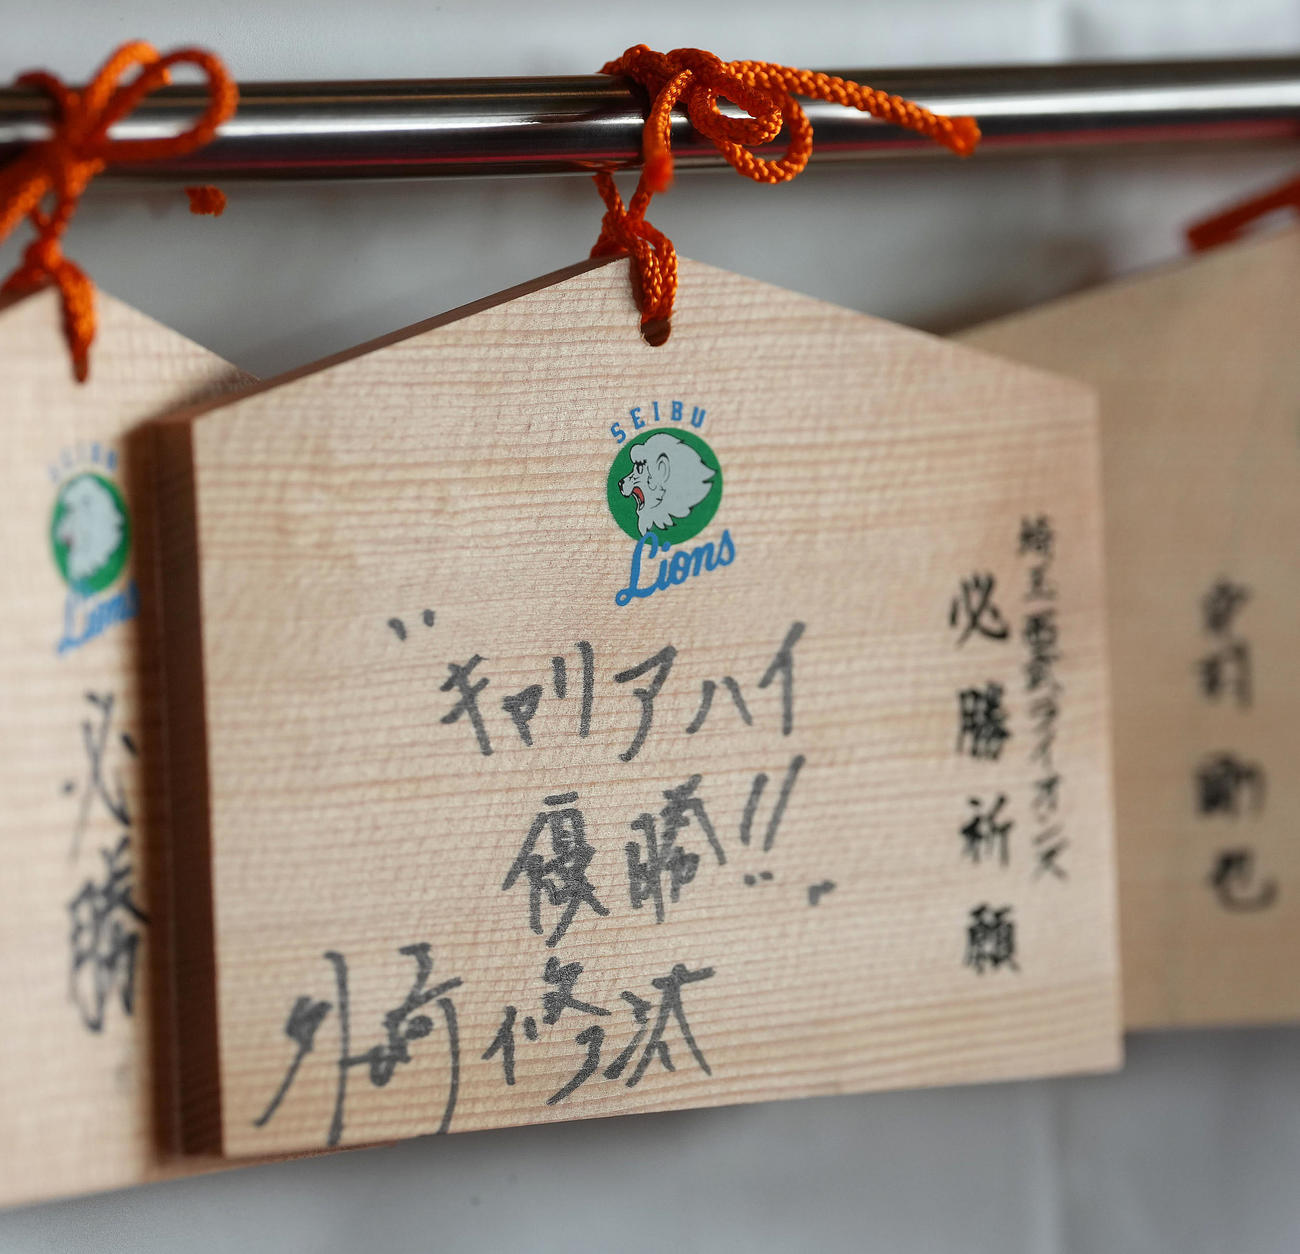 SEIBU
Lions
埼玉西武ライオンズ
必勝祈願
"キャリアハイ
優勝!!"
外崎修汰
SEIBU
Lions
必勝